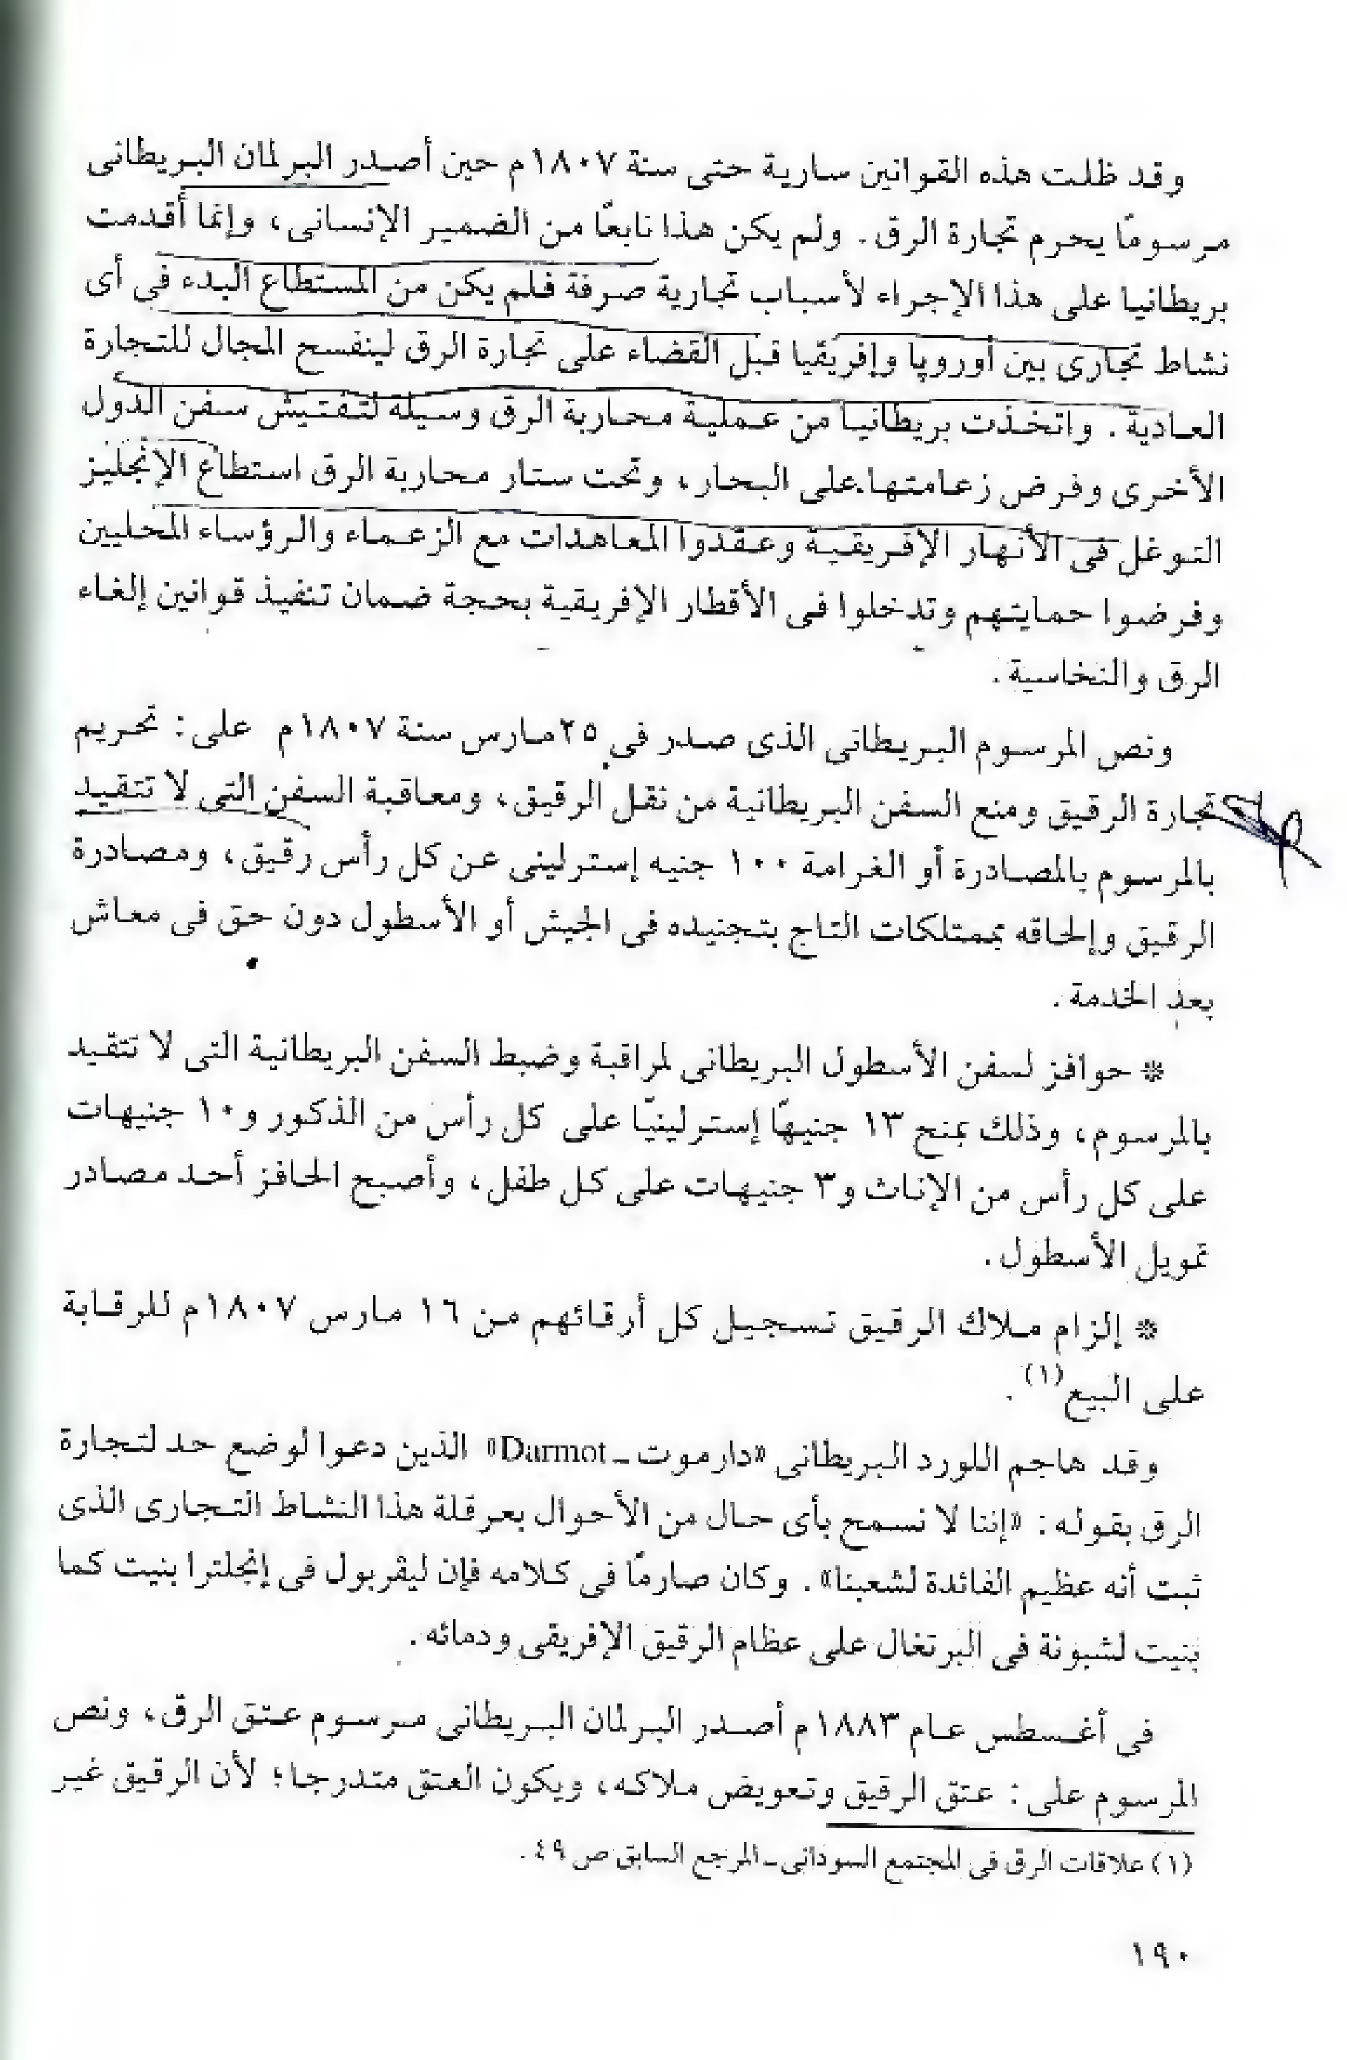 وقد ظلت هذه القوانين سارية حتى سنة ١٨٠٧م حين أصدر البرلمان البريطانى
مرسومًا يحرم تجارة الرق. ولم يكن هذا نابعًا من الضمير الإنسانى، وإنما أقدمت
بريطانيا على هذا الإجراء لأسباب تجارية صرفة فلم يكن من المستطاع البدء فى أى
نشاط تجارى بين أوروپا وإفريقيا قبل القضاء على تجارة الرق لينفسح المجال للتجارة
العادية. واتخذت بريطانيا من عملية محاربة الرق وسيلة لتفتيش سفن الدول
الأخرى وفرض زعامتها على البحار، وتحت ستار محاربة الرق استطاع الإنجليز
التوغل فى الأنهار الإفريقية وعقدوا المعاهدات مع الزعماء والرؤساء المحليين
وفرضوا حمايتهم وتدخلوا فى الأقطار الإفريقية بحجة ضمان تنفيذ قوانين إلغاء
الرق والنخاسية.
ونص المرسوم البريطانى الذى صدر فى ٢٥ مارس سنة ١٨٠٧م على: تحريم
تجارة الرقيق ومنع السفن البريطانية من نقل الرقيق، ومعاقبة السفن التى لا تتقيد
بالمرسوم بالمصادرة أو الغرامة ١٠٠ جنيه إسترلينى عن كل رأس رقيق، ومصادرة
الرقيق وإلحاقه بممتلكات التاج بتجنيده فى الجيش أو الأسطول دون حق فى معاش
بعد الخدمة.
* حوافز لسفن الأسطول البريطانى لمراقبة وضبط السفن البريطانية التى لا تتقيد
بالمرسوم، وذلك بمنح ١٣ جنيهًا إسترلينيًا على كل رأس من الذكور و١٠ جنيهات
على كل رأس من الإناث و٣ جنيهات على كل طفل، وأصبح الحافز أحد مصادر
تمويل الأسطول.
* إلزام ملاك الرقيق تسجيل كل أرقائهم من ١٦ مارس ١٨٠٧م للرقابة
على البيع(١).
وقد هاجم اللورد البريطانى «دارموت ـ Darmot» الذين دعوا لوضع حد لتجارة
الرق بقوله: «إننا لا نسمح بأى حال من الأحوال بعرقلة هذا النشاط التجارى الذى
ثبت أنه عظيم الفائدة لشعبنا». وكان صارمًا فى كلامه فإن ليڤربول فى إنجلترا بنيت كما
بنيت لشبونة فى البرتغال على عظام الرقيق الإفريقى ودمائه.
فى أغسطس عام ١٨٨٣م أصدر البرلمان البريطانى مرسوم عتق الرق، ونص
المرسوم على: عتق الرقيق وتعويض ملاكه، ويكون العتق متدرجا؛ لأن الرقيق غير
(١) علاقات الرق فى المجتمع السودانى ـ المرجع السابق ص ٤٩.
١٩٠